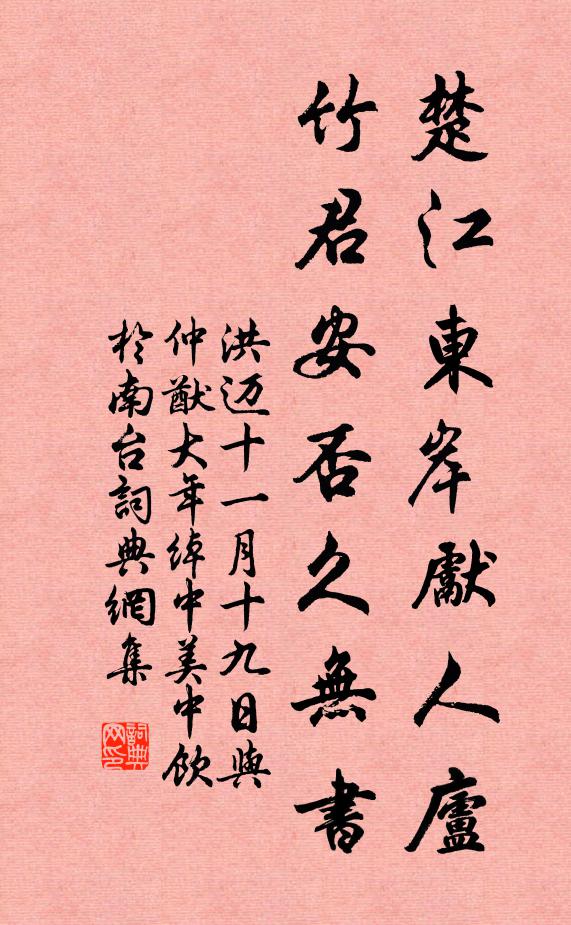 楚江東岸獻人廬
竹君安否久無書
洪迈十一月十九日與
仲猷大年綽中美中飲
於南台詞典網集
詞典网印